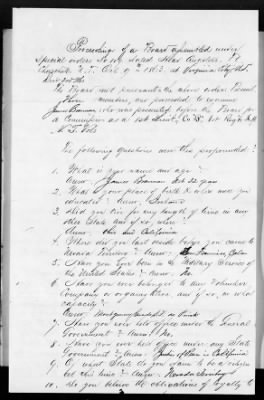 Proceedings of a Board appointed under
Special orders No 10 dated Head Quarters Ft
Churchill N.T. Oct 9th 1863 at Virginia City N.T.
The Board met pursuant to the above order Present
members, and proceeded to examine
James Brannan who was presented before the Board for
a Commission as a 1st Lieut, Co B 1st Regt
N.T. Vols
The following questions were then propounded:
1. What is your name and age?
Answ. James Brannan 32 years
2. What is your place of birth & where were you
educated? Answ. Ireland
3. Did you live for any length of time in any
other State and if so, where?
Answ: Ohio and California
4. Where did you last reside before you came to
Nevada Territory? Answ. San Francisco Cala
5. Have you ever been in the Military Service of
the United States? Answ. No.
6. Have you ever belonged to any Volunteer
Company or organization, and if so, in what
capacity?
Answ. Montgomery Guards, as Private
7. Have you ever held office under the Federal
Government? Answ. No.
8. Have you ever held office under any State
Government? Answ. in California
9. Of what State do you claim to be a citizen
at this time? Answ. Nevada Territory
10. Do you believe the obligations of loyalty to